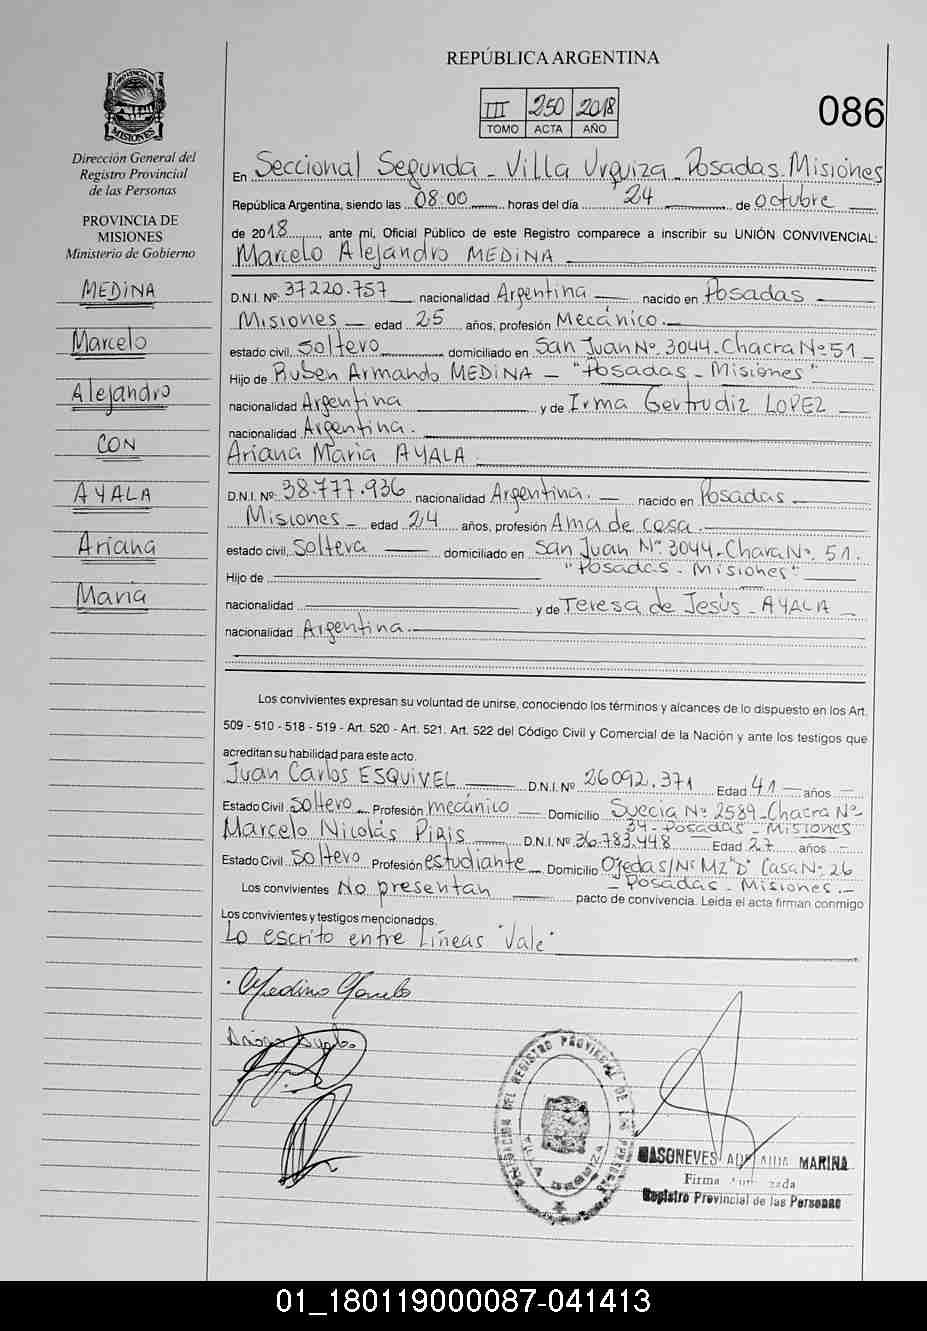 REPÚBLICA ARGENTINA
III 250 2018
TOMO ACTA AÑO
086
PROVINCIA DE MISIONES
Dirección General del
Registro Provincial
de las Personas
PROVINCIA DE
MISIONES
Ministerio de Gobierno
MEDINA
Marcelo
Alejandro
CON
AYALA
Ariana
Maria
En Seccional Segunda - Villa Urquiza - Posadas Misiones
República Argentina, siendo las 08:00 horas del día 24 de octubre
de 2018, ante mí, Oficial Público de este Registro comparece a inscribir su UNIÓN CONVIVENCIAL:
Marcelo Alejandro MEDINA
D.N.I. Nº: 37220.757 nacionalidad Argentina nacido en Posadas
Misiones edad 25 años, profesión Mecánico.
estado civil, soltero domiciliado en San Juan Nº 3044 - Chacra Nº 51
Hijo de Ruben Armando MEDINA - "Posadas - Misiones"
nacionalidad Argentina y de Irma Gertrudiz LOPEZ
nacionalidad Argentina.
Ariana Maria AYALA
D.N.I. Nº: 38.777.936 nacionalidad Argentina. nacido en Posadas
Misiones edad 24 años, profesión Ama de casa.
estado civil, Soltera domiciliado en San Juan Nº 3044 - Chara Nº 51.
Hijo de "Posadas - Misiones"
nacionalidad y de Teresa de Jesús - AYALA
nacionalidad Argentina.
Los convivientes expresan su voluntad de unirse, conociendo los términos y alcances de lo dispuesto en los Art.
509 - 510 - 518 - 519 - Art. 520 - Art. 521. Art. 522 del Código Civil y Comercial de la Nación y ante los testigos que
acreditan su habilidad para este acto.
Juan Carlos ESQUIVEL D.N.I. Nº 26092.371 Edad 41 años
Estado Civil Soltero Profesión mecánico Domicilio Suecia Nº 2589 - Chacra Nº
34 - Posadas - Misiones
Marcelo Nicolás Piris D.N.I. Nº 36.783.448 Edad 27 años
Estado Civil Soltero Profesión estudiante Domicilio Ojeda S/Nº Mz "D" Casa Nº 26
- Posadas - Misiones.-
Los convivientes No presentan pacto de convivencia. Leida el acta firman conmigo
Los convivientes y testigos mencionados.
Lo escrito entre Líneas "Vale"
Medina Marcelo
REGISTRO PROVINCIAL DE LAS PERSONAS
VILLA URQUIZA
MASONEVES MARINA
Firma
Registro Provincial de las Personas
01_180119000087-041413